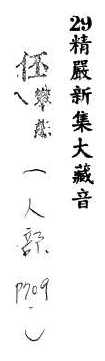 29精嚴新集大藏音
一人部 P709